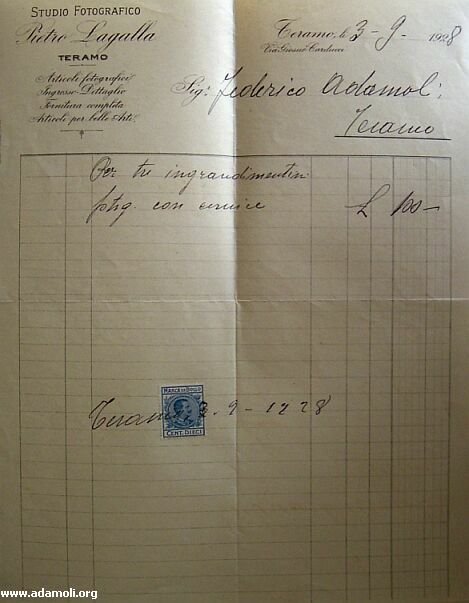 STUDIO FOTOGRAFICO
Pietro Lagalla
TERAMO
Articoli fotografici
Ingrosso-Dettaglio
Fornitura completa
Articoli per belle Arti.
Teramo, li 3-9-1928
Via Giosuè Carducci
Sig: Federico Adamoli
Teramo
Per tre ingrandimenti
fotog. con cornice £ 100-
MARCA DA BOLLO
Teramo 3.9-1928
CENT. DIECI
www.adamoli.org